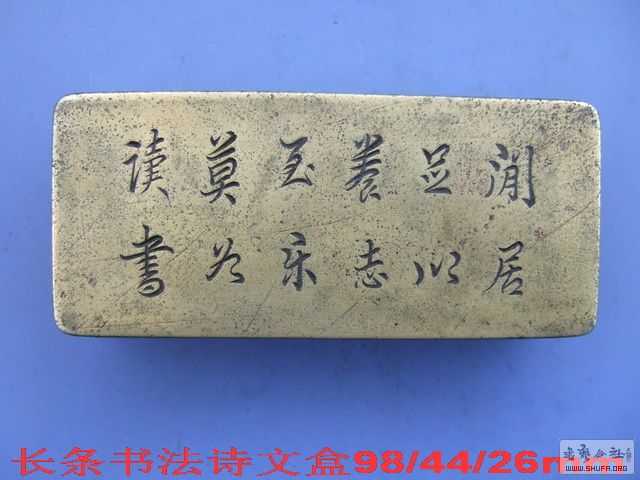 閒居
足以
養志
至樂
莫如
讀書
长条书法诗文盒98/44/26m
书艺公社
WWW.SHUFA.ORG